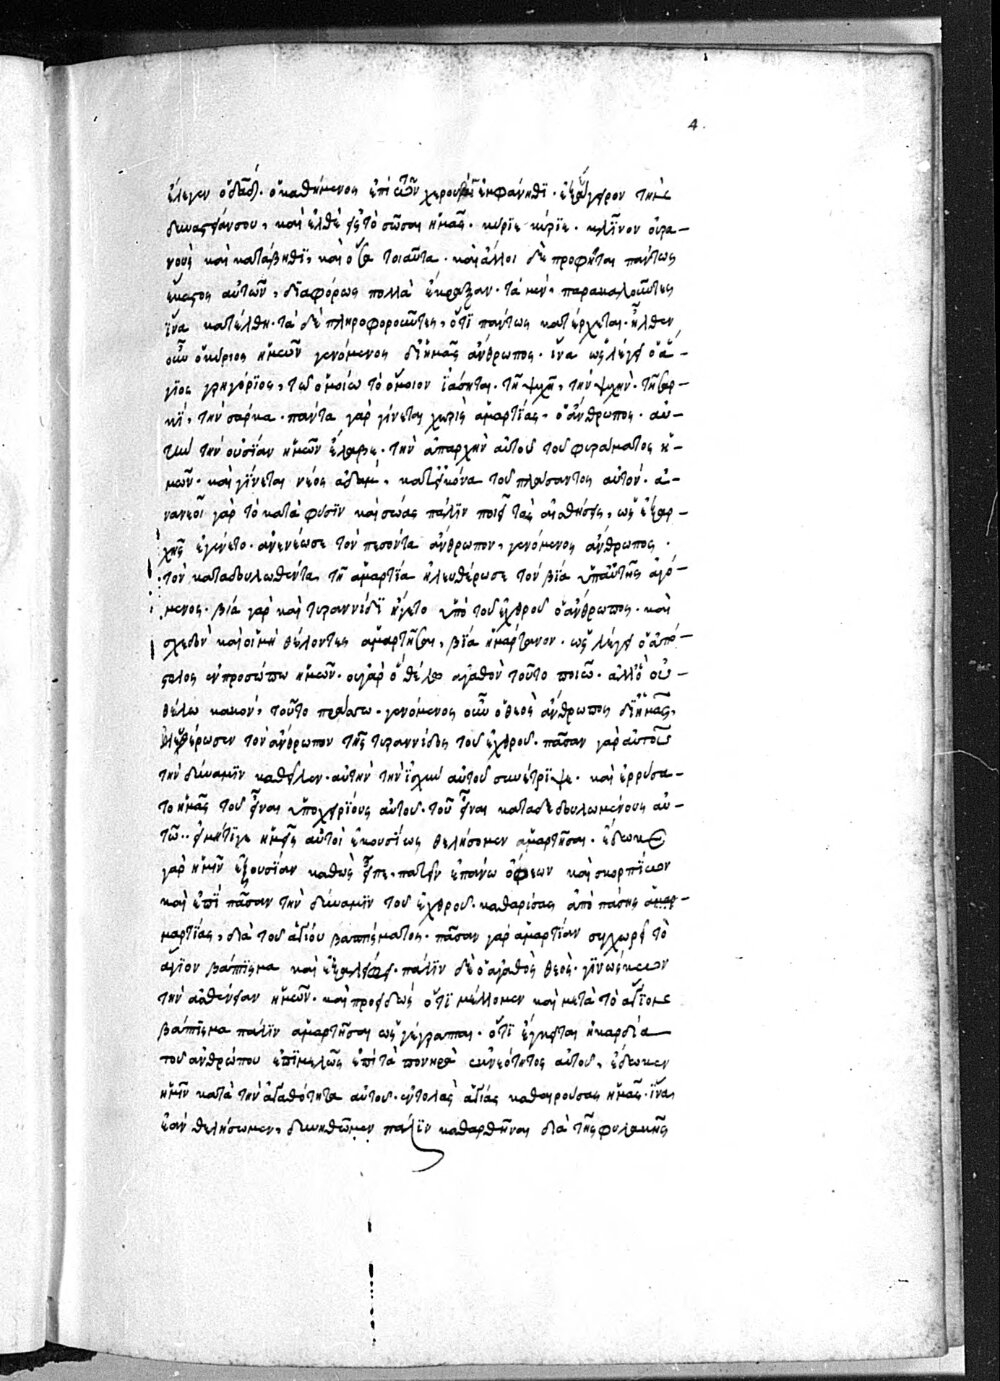 4.
ἔλεγεν ὁ δᾱδ· ὁ καθήμενος ἐπὶ τῶν χερουβὶμ ἐμφάνηθι· ἐξέγειρον τὴν
δυναστείαν σου, καὶ ἐλθὲ εἰς τὸ σῶσαι ἡμᾶς· κύριε κύριε· κλῖνον οὐρα-
νοὺς καὶ κατάβηθι, καὶ ὅσα τοιαῦτα· καὶ ἄλλοι δὲ προφῆται πάντως
ἕκαστος αὐτῶν, διαφόρως πολλὰ ἔκραξαν· τὰ μὲν, παρακαλοῦντες
ἵνα κατέλθη· τὰ δὲ πληροφοροῦντες, ὅτι πάντως κατέρχεται· ἦλθεν
οὖν ὁ κύριος ἡμῶν γενόμενος δι' ἡμᾶς ἄνθρωπος· ἵνα ὡς λέγει ὁ ἅ-
γιος γρηγόριος, τῶ ὁμοίω τὸ ὅμοιον ἰάσηται· τῆ ψυχῆ, τὴν ψυχὴν· τῆ σαρ-
κὶ, τὴν σάρκα· πάντα γὰρ γίνεται χωρὶς ἁμαρτίας, ὁ ἄνθρωπος· αὐ-
τὴν τὴν οὐσίαν ἡμῶν ἔλαβε· τὴν ἀπαρχὴν αὐτοῦ τοῦ φυράματος ἡ-
μῶν· καὶ γίνεται νέος ἀδὰμ, κατ' εἰκόνα τοῦ πλάσαντος αὐτόν· ἀ-
νανεοῖ γὰρ τὸ κατὰ φύσιν καὶ σώας πάλιν ποιεῖ τὰς αἰσθήσεις, ὡς ἐξαρ-
χῆς ἐγένετο· ἀνενέωσε τὸν πεσόντα ἄνθρωπον, γενόμενος ἄνθρωπος·
τὸν καταδουλωθέντα τῆ ἁμαρτία ἠλευθέρωσε τὸν βία ὑπ' αὐτῆς ἀγό-
μενος· βία γὰρ καὶ τυραννίδι ἤγετο ὑπὸ τοῦ ἐχθροῦ ὁ ἄνθρωπος· καὶ
σχεδὸν καὶ οἱ μὴ θέλοντες ἁμαρτῆσαι, βία ἡμάρτανον· ὡς λέγει ὁ ἀπό-
στολος ἐν προσώπω ἡμῶν· οὐ γὰρ ὃ θέλω ἀγαθὸν τοῦτο ποιῶ· ἀλλ' ὃ οὐ-
θέλω κακὸν, τοῦτο πράσσω· γενόμενος οὖν ὁ θεὸς ἄνθρωπος δι' ἡμᾶς,
ἐλευθέρωσεν τὸν ἄνθρωπον τῆς τυραννίδος τοῦ ἐχθροῦ· πᾶσαν γὰρ αὐτοῦ
τὴν δύναμιν καθεῖλεν· αὐτὴν τὴν ἰσχὺν αὐτοῦ συνέτριψε· καὶ ἐρρύσα-
το ἡμᾶς τοῦ εἶναι ὑποχειρίους αὐτοῦ· τοῦ εἶναι καταδεδουλωμένους αὐ-
τῶ·· εἰ μήτιγε ἡμεῖς αὐτοὶ ἑκουσίως θελήσομεν ἁμαρτῆσαι· ἔδωκε
γὰρ ἡμῖν ἐξουσίαν καθὼς εἶπε, πατεῖν ἐπάνω ὄφεων καὶ σκορπίων
καὶ ἐπὶ πᾶσαν τὴν δύναμιν τοῦ ἐχθροῦ· καθαρίσας ἀπὸ πάσης ἁμαρ-
μαρτίας, διὰ τοῦ ἁγίου βαπτίσματος· πᾶσαν γὰρ ἁμαρτίαν συγχωρεῖ τὸ
ἅγιον βάπτισμα καὶ ἐξαλείφει· πάλιν δὲ ὁ ἀγαθὸς θεὸς· γινώσκων
τὴν ἀσθένειαν ἡμῶν· καὶ προειδὼς ὅτι μέλλομεν καὶ μετὰ τὸ ἅγιον
βάπτισμα πάλιν ἁμαρτῆσαι ὡς γέγραπται· ὅτι ἔγκειται ἡ καρδία
τοῦ ἀνθρώπου ἐπιμελῶς ἐπὶ τὰ πονηρὰ ἐκ νεότητος αὐτοῦ, ἔδωκεν
ἡμῖν κατὰ τὴν ἀγαθότητα αὐτοῦ· ἐντολὰς ἁγίας καθαιρούσας ἡμᾶς· ἵνα
ἐὰν θελήσωμεν, δυνηθῶμεν πάλιν καθαρθῆναι διὰ τῆς φυλακῆς